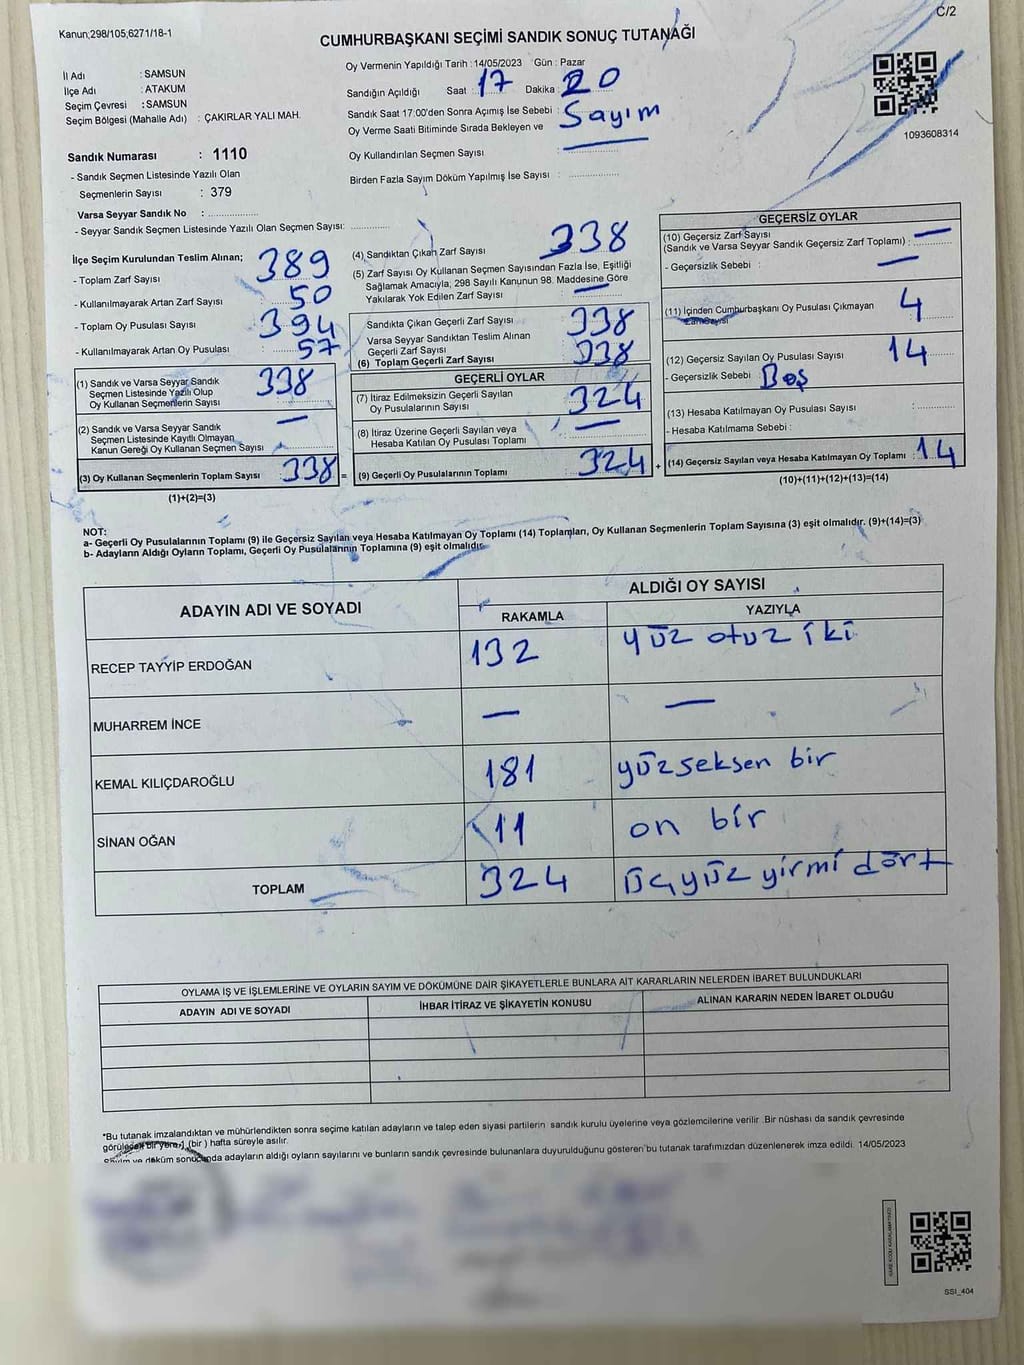 C/2
Kanun;298/105;6271/18-1
CUMHURBAŞKANI SEÇİMİ SANDIK SONUÇ TUTANAĞI
İl Adı : SAMSUN
İlçe Adı : ATAKUM
Seçim Çevresi : SAMSUN
Seçim Bölgesi (Mahalle Adı) : ÇAKIRLAR YALI MAH.
Oy Vermenin Yapıldığı Tarih : 14/05/2023 Gün : Pazar
Sandığın Açıldığı Saat : 17 Dakika : 20
Sandık Saat 17:00'den Sonra Açımış İse Sebebi : Sayım
Oy Verme Saati Bitiminde Sırada Bekleyen ve
Oy Kullandırılan Seçmen Sayısı :
Birden Fazla Sayım Döküm Yapılmış İse Sayısı :
1093608314
Sandık Numarası : 1110
- Sandık Seçmen Listesinde Yazılı Olan
Seçmenlerin Sayısı : 379
Varsa Seyyar Sandık No :
- Seyyar Sandık Seçmen Listesinde Yazılı Olan Seçmen Sayısı:
İlçe Seçim Kurulundan Teslim Alınan;
- Toplam Zarf Sayısı : 389
- Kullanılmayarak Artan Zarf Sayısı : 50
- Toplam Oy Pusulası Sayısı : 394
- Kullanılmayarak Artan Oy Pusulası : 57
(1) Sandık ve Varsa Seyyar Sandık
Seçmen Listesinde Yazılı Olup
Oy Kullanan Seçmenlerin Sayısı : 338
(2) Sandık ve Varsa Seyyar Sandık
Seçmen Listesinde Kayıtlı Olmayan
Kanun Gereği Oy Kullanan Seçmen Sayısı : —
(3) Oy Kullanan Seçmenlerin Toplam Sayısı : 338 =
(1)+(2)=(3)
(4) Sandıktan Çıkan Zarf Sayısı : 338
(5) Zarf Sayısı Oy Kullanan Seçmen Sayısından Fazla İse, Eşitliği
Sağlamak Amacıyla; 298 Sayılı Kanunun 98. Maddesine Göre
Yakılarak Yok Edilen Zarf Sayısı : —
Sandıkta Çıkan Geçerli Zarf Sayısı : 338
Varsa Seyyar Sandıktan Teslim Alınan
Geçerli Zarf Sayısı
(6) Toplam Geçerli Zarf Sayısı : 338
GEÇERLİ OYLAR
(7) İtiraz Edilmeksizin Geçerli Sayılan
Oy Pusulalarının Sayısı : 324
(8) İtiraz Üzerine Geçerli Sayılan veya
Hesaba Katılan Oy Pusulası Toplamı : —
(9) Geçerli Oy Pusulalarının Toplamı : 324 +
GEÇERSİZ OYLAR
(10) Geçersiz Zarf Sayısı
(Sandık ve Varsa Seyyar Sandık Geçersiz Zarf Toplamı) : —
- Geçersizlik Sebebi : —
(11) İçinden Cumhurbaşkanı Oy Pusulası Çıkmayan
Zarf Sayısı : 4
(12) Geçersiz Sayılan Oy Pusulası Sayısı : 14
- Geçersizlik Sebebi : Boş
(13) Hesaba Katılmayan Oy Pusulası Sayısı :
- Hesaba Katılmama Sebebi :
(14) Geçersiz Sayılan veya Hesaba Katılmayan Oy Toplamı : 14
(10)+(11)+(12)+(13)=(14)
NOT:
a- Geçerli Oy Pusulalarının Toplamı (9) ile Geçersiz Sayılan veya Hesaba Katılmayan Oy Toplamı (14) Toplamları, Oy Kullanan Seçmenlerin Toplam Sayısına (3) eşit olmalıdır. (9)+(14)=(3)
b- Adayların Aldığı Oyların Toplamı, Geçerli Oy Pusulalarının Toplamına (9) eşit olmalıdır.
ADAYIN ADI VE SOYADI ALDIĞI OY SAYISI
RAKAMLA YAZIYLA
RECEP TAYYİP ERDOĞAN 132 yüz otuz iki
MUHARREM İNCE — —
KEMAL KILIÇDAROĞLU 181 yüzseksen bir
SİNAN OĞAN 11 on bir
TOPLAM 324 üçyüz yirmi dört
OYLAMA İŞ VE İŞLEMLERİNE VE OYLARIN SAYIM VE DÖKÜMÜNE DAİR ŞİKAYETLERLE BUNLARA AİT KARARLARIN NELERDEN İBARET BULUNDUKLARI
ADAYIN ADI VE SOYADI İHBAR İTİRAZ VE ŞİKAYETİN KONUSU ALINAN KARARIN NEDEN İBARET OLDUĞU
*Bu tutanak imzalandıktan ve mühürlendikten sonra seçime katılan adayların ve talep eden siyasi partilerin sandık kurulu üyelerine veya gözlemcilerine verilir. Bir nüshası da sandık çevresinde
görülecek bir yere 1 (bir ) hafta süreyle asılır.
Sayım ve döküm sonucunda adayların aldığı oyların sayılarını ve bunların sandık çevresinde bulunanlara duyurulduğunu gösteren bu tutanak tarafımızdan düzenlenerek imza edildi. 14/05/2023
SSI_404